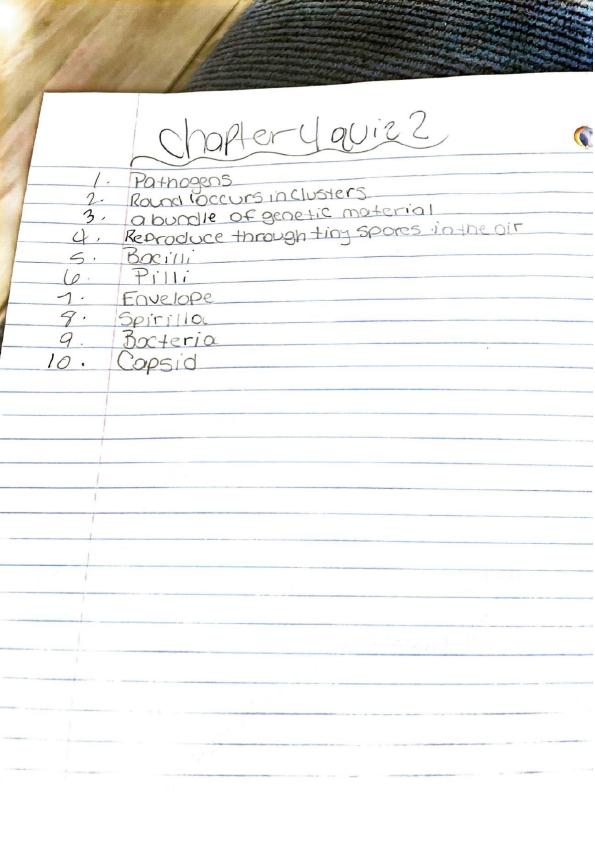 Chapter 4 quiz 2
1. Pathogens
2. Round occurs in clusters
3. a bundle of genetic material
4. Reproduce through tiny spores in the air
5. Bacilli
6. Pilli
7. Envelope
8. Spirilla
9. Bacteria
10. Capsid